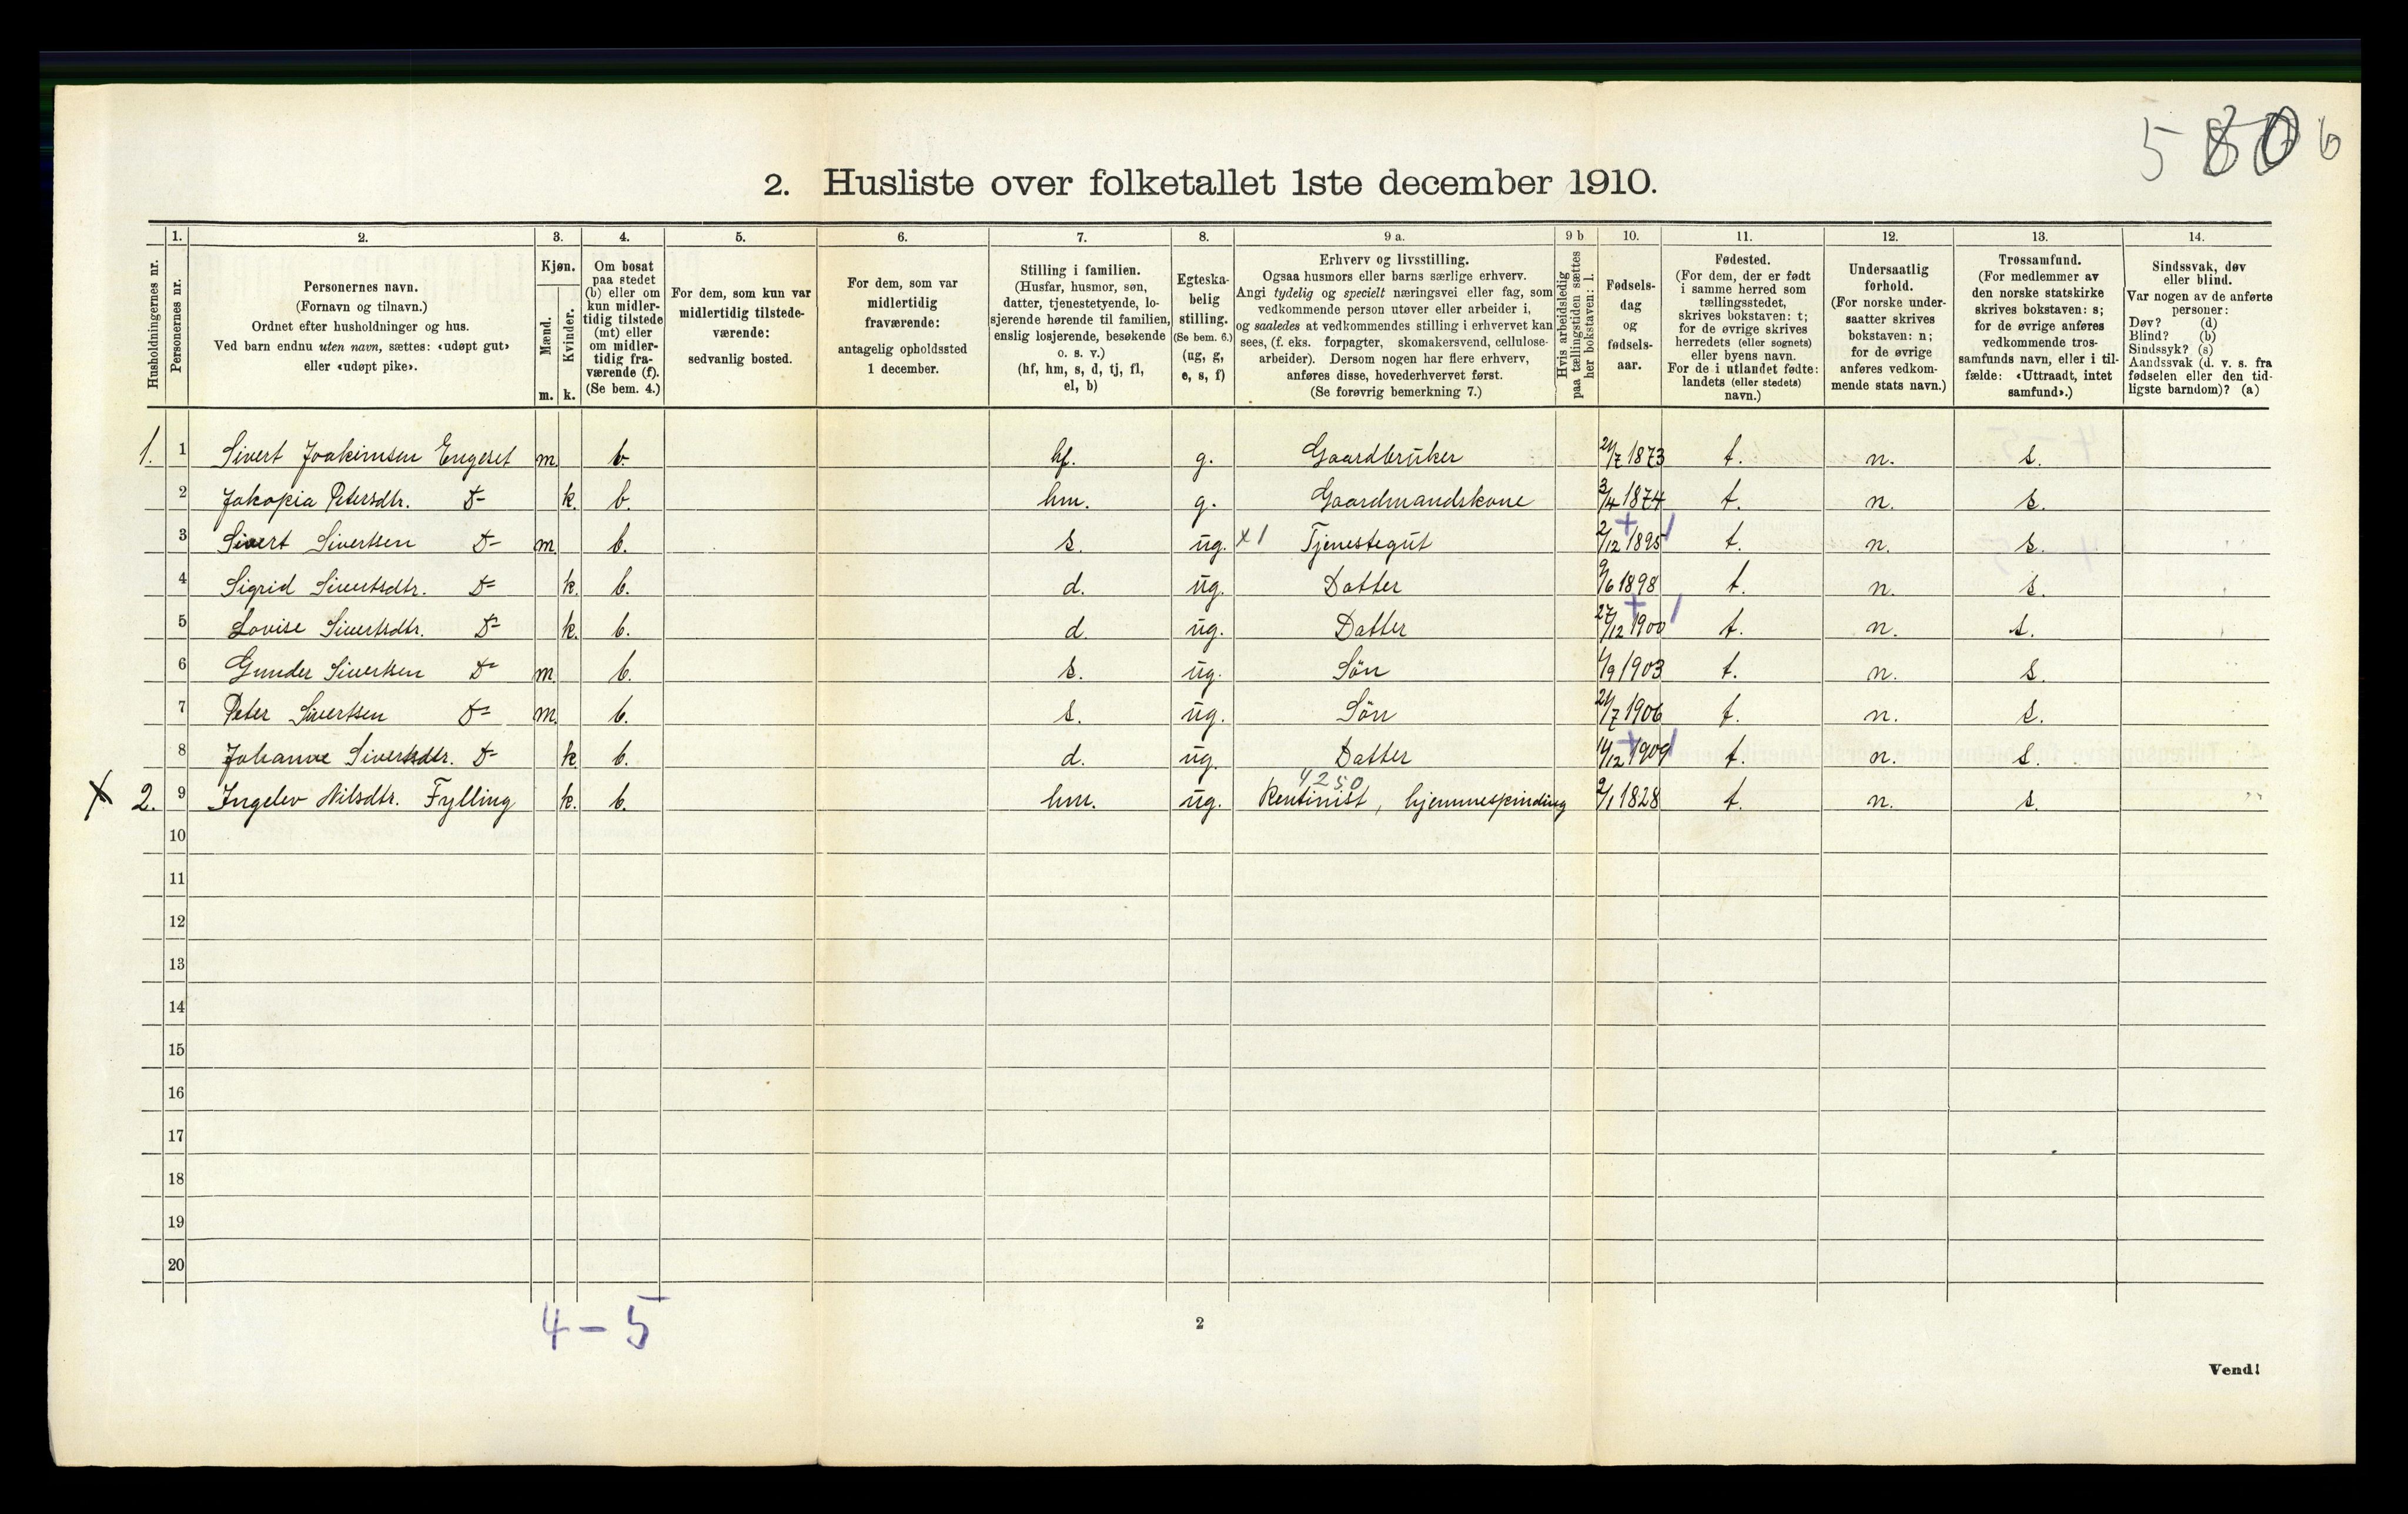 5 80 6
2. Husliste over folketallet 1ste december 1910.
Husholdningernes nr.
1.
Personernes nr.
2.
Personernes navn.
(Fornavn og tilnavn.)
Ordnet efter husholdninger og hus.
Ved barn endnu uten navn, sættes: «udøpt gut»
eller «udøpt pike».
3.
Kjøn.
Mænd.
Kvinder.
m. k.
4.
Om bosat
paa stedet
(b) eller om
kun midler-
tidig tilstede
(mt) eller
om midler-
tidig fra-
værende (f).
(Se bem. 4.)
5.
For dem, som kun var
midlertidig tilstede-
værende:
sedvanlig bosted.
6.
For dem, som var
midlertidig
fraværende:
antagelig opholdssted
1 december.
7.
Stilling i familien.
(Husfar, husmor, søn,
datter, tjenestetyende, lo-
sjerende hørende til familien,
enslig losjerende, besøkende
o. s. v.)
(hf, hm, s, d, tj, fl,
el, b)
8.
Egteska-
belig
stilling.
(Se bem. 6.)
(ug, g,
e, s, f)
9 a.
Erhverv og livsstilling.
Ogsaa husmors eller barns særlige erhverv.
Angi tydelig og specielt næringsvei eller fag, som
vedkommende person utøver eller arbeider i,
og saaledes at vedkommendes stilling i erhvervet kan
sees, (f. eks. forpagter, skomakersvend, cellulose-
arbeider). Dersom nogen har flere erhverv,
anføres disse, hovederhvervet først.
(Se forøvrig bemerkning 7.)
9 b
Hvis arbeidsledig
paa tællingstiden sættes
her bokstaven: l.
10.
Fødsels-
dag
og
fødsels-
aar.
11.
Fødested.
(For dem, der er født
i samme herred som
tællingsstedet,
skrives bokstaven: t;
for de øvrige skrives
herredets (eller sognets)
eller byens navn.
For de i utlandet fødte:
landets (eller stedets)
navn.)
12.
Undersaatlig
forhold.
(For norske under-
saatter skrives
bokstaven: n;
for de øvrige
anføres vedkom-
mende stats navn.)
13.
Trossamfund.
(For medlemmer av
den norske statskirke
skrives bokstaven: s;
for de øvrige anføres
vedkommende tros-
samfunds navn, eller i til-
fælde: «Uttraadt, intet
samfund».)
14.
Sindssvak, døv
eller blind.
Var nogen av de anførte
personer:
Døv? (d)
Blind? (b)
Sindssyk? (s)
Aandssvak (d. v. s. fra
fødselen eller den tid-
ligste barndom)? (a)
1. 1 Sivert Joakimsen Engeset m. b. hf. g. Gaardbruker 21/7 1873 t. n. s.
2 Jakopia Petersdtr. D- k. b. hm. g. Gaardmandskone 3/4 1874 t. n. s.
3 Sivert Sivertsen D- m. b. s. ug. x1 Tjenestegut 2/12 1895 t. n. s.
4 Sigrid Sivertsdtr. D- k. b. d. ug. Datter 9/6 1898 t. n. s.
5 Lovise Sivertsdtr. D- k. b. d. ug. Datter 27/12 1900 t. n. s.
6 Gunder Sivertsen D- m. b. s. ug. Sön 1/9 1903 t. n. s.
7 Peter Sivertsen D- m. b. s. ug. Sön 21/7 1906 t. n. s.
8 Johanne Sivertsdtr. D- k b. d. ug. Datter 14/12 1909 t. n. s.
4250
x 2. 9 Ingelev Nilsdtr. Fylling k. b. hm. ug. Rentinist, hjemmespinding 2/1 1828 t. n. s.
10
11
12
13
14
15
16
17
18
19
20
4-5
2
Vend!